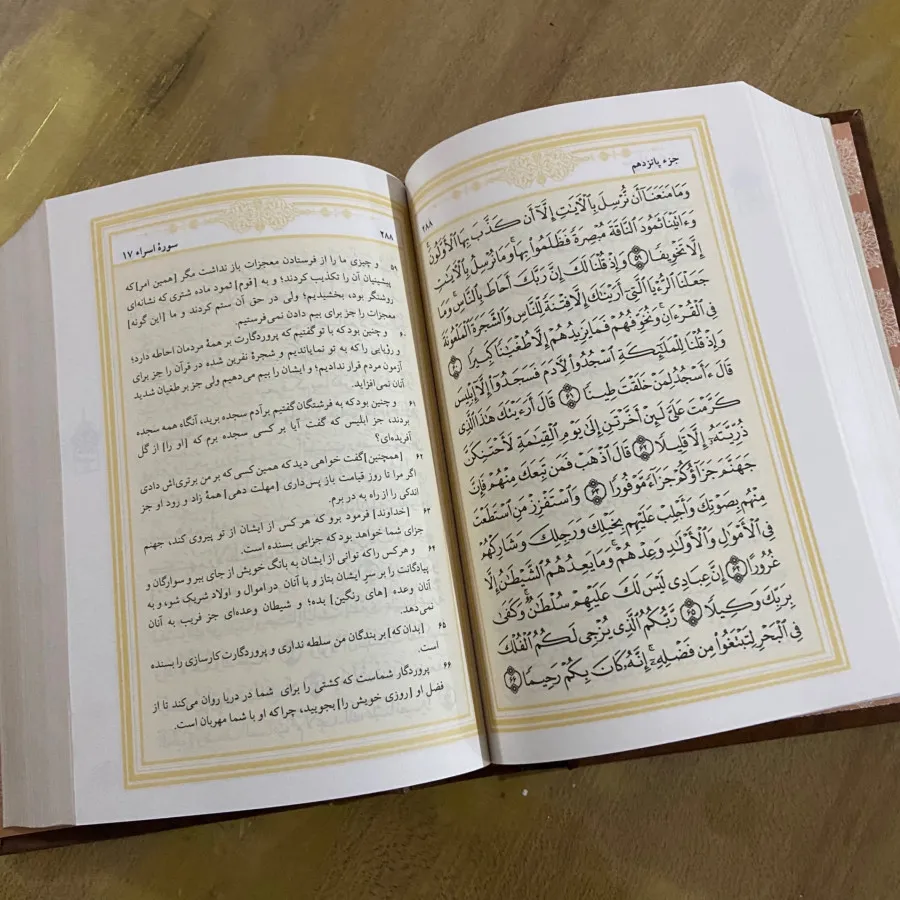 جزء پانزدهم
۲۸۸
وَمَا مَنَعَنَا أَن نُّرْسِلَ بِالْآيَٰتِ إِلَّا أَن كَذَّبَ بِهَا الْأَوَّلُونَ
وَءَاتَيْنَا ثَمُودَ النَّاقَةَ مُبْصِرَةً فَظَلَمُوا بِهَا وَمَا نُرْسِلُ بِالْآيَٰتِ
إِلَّا تَخْوِيفًا ۵۹ وَإِذْ قُلْنَا لَكَ إِنَّ رَبَّكَ أَحَاطَ بِالنَّاسِ وَمَا
جَعَلْنَا الرُّءْيَا الَّتِي أَرَيْنَٰكَ إِلَّا فِتْنَةً لِّلنَّاسِ وَالشَّجَرَةَ الْمَلْعُونَةَ
فِي الْقُرْءَانِ وَنُخَوِّفُهُمْ فَمَا يَزِيدُهُمْ إِلَّا طُغْيَٰنًا كَبِيرًا ۶۰
وَإِذْ قُلْنَا لِلْمَلَٰئِكَةِ اسْجُدُوا لِأَدَمَ فَسَجَدُوا إِلَّا إِبْلِيسَ
قَالَ ءَأَسْجُدُ لِمَنْ خَلَقْتَ طِينًا ۶۱ قَالَ أَرَءَيْتَكَ هَٰذَا الَّذِي
كَرَّمْتَ عَلَيَّ لَئِنْ أَخَّرْتَنِ إِلَىٰ يَوْمِ الْقِيَٰمَةِ لَأَحْتَنِكَنَّ
ذُرِّيَّتَهُ إِلَّا قَلِيلًا ۶۲ قَالَ اذْهَبْ فَمَن تَبِعَكَ مِنْهُمْ فَإِنَّ
جَهَنَّمَ جَزَاؤُكُمْ جَزَاءً مَّوْفُورًا ۶۳ وَاسْتَفْزِزْ مَنِ اسْتَطَعْتَ
مِنْهُم بِصَوْتِكَ وَأَجْلِبْ عَلَيْهِم بِخَيْلِكَ وَرَجِلِكَ وَشَارِكْهُمْ
فِي الْأَمْوَٰلِ وَالْأَوْلَٰدِ وَعِدْهُمْ وَمَا يَعِدُهُمُ الشَّيْطَٰنُ إِلَّا
غُرُورًا ۶۴ إِنَّ عِبَادِي لَيْسَ لَكَ عَلَيْهِمْ سُلْطَٰنٌ وَكَفَىٰ
بِرَبِّكَ وَكِيلًا ۶۵ رَّبُّكُمُ الَّذِي يُزْجِي لَكُمُ الْفُلْكَ
فِي الْبَحْرِ لِتَبْتَغُوا مِن فَضْلِهِ إِنَّهُ كَانَ بِكُمْ رَحِيمًا ۶۶
۲۸۸
سورهٔ اسراء ۱۷
۵۹ و چیزی ما را از فرستادن معجزات باز نداشت مگر [همین امر] که
پیشینیان آن را تکذیب کردند؛ و به [قوم] ثمود ماده شتری که نشانه‌ای
روشنگر بود، بخشیدیم؛ ولی در حق آن ستم کردند و ما [این گونه]
معجزات را جز برای بیم دادن نمی‌فرستیم.
۶۰ و چنین بود که با تو گفتیم که پروردگارت بر همهٔ مردمان احاطه دارد؛
و رؤیایی را که به تو نمایاندیم و شجرهٔ نفرین شده در قرآن را جز برای
آزمون مردم قرار ندادیم؛ و ایشان را بیم می‌دهیم ولی جز بر طغیان شدید
آنان نمی افزاید.
۶۱ و چنین بود که به فرشتگان گفتیم برآدم سجده برید، آنگاه همه سجده
بردند، جز ابلیس که گفت آیا بر کسی سجده برم که [او را] از گل
آفریده‌ای؟
۶۲ [همچنین] گفت خواهی دید که همین کسی که بر من برتری‌اش دادی
اگر مرا تا روز قیامت باز پس‌داری [مهلت دهی] همهٔ زاد و رود او جز
اندکی را از راه به در برم.
۶۳ [خداوند] فرمود برو که هر کس از ایشان از تو پیروی کند، جهنم
جزای شما خواهد بود که جزایی بسنده است.
۶۴ و هر کس را که توانی از ایشان به بانگ خویش از جای ببر و سوارگان و
پیادگانت را بر سر ایشان بتاز و با آنان در اموال و اولاد شریک شو، و به
آنان وعده [های رنگین] بده؛ و شیطان وعده‌ای جز فریب به آنان
نمی‌دهد.
۶۵ [بدان که] بر بندگان من سلطه نداری و پروردگارت کارسازی را بسنده
است.
۶۶ پروردگار شماست که کشتی را برای شما در دریا روان می‌کند تا از
فضل او [روزی خویش را] بجویید، چراکه او با شما مهربان است.